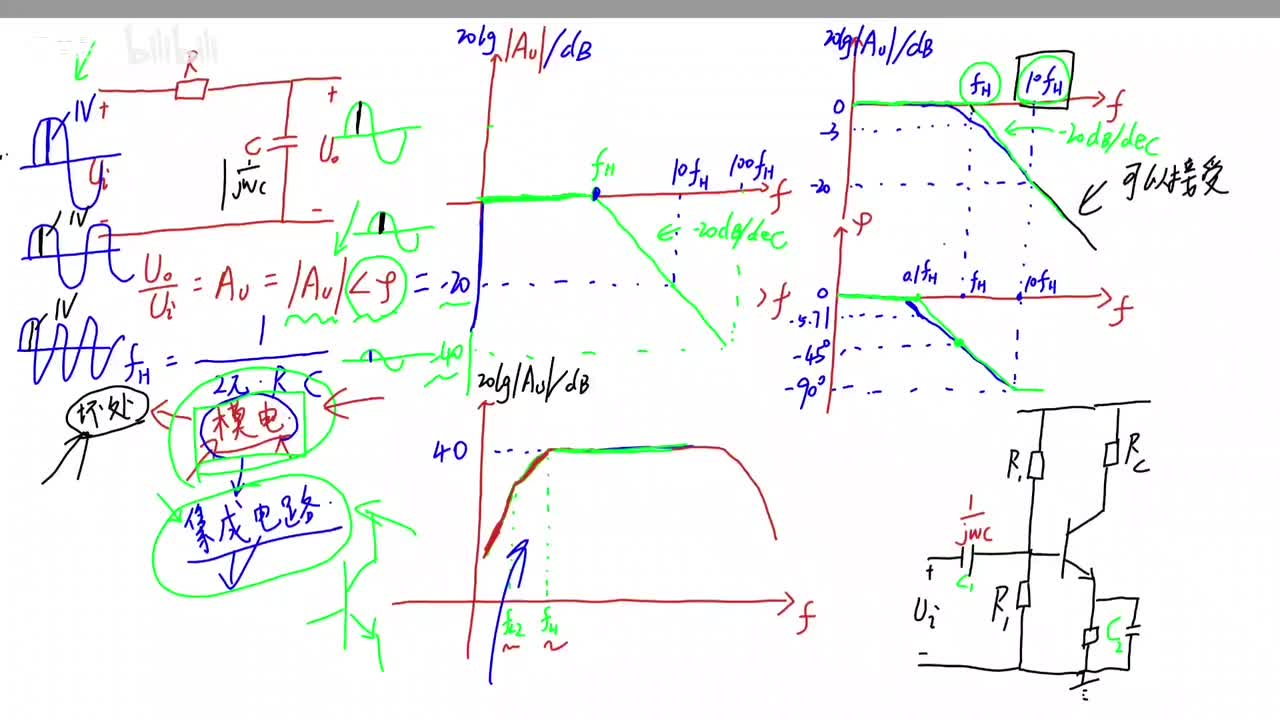 bilibili
R
+
+
1V
Ui
C
1/jwc
Uo
-
-
1V
1V
Uo/Ui = Au = |Au|∠φ =
fH = 1/2π·RC
坏处
模电
集成电路
20lg|Au|/dB
fH
10fH
100fH
f
-20dB/dec
-20
f
-40
20lg|Au|/dB
40
fL2
f
20lg|Au|/dB
fH
10fH
0
f
-3
-20dB/dec
-20
可以接受
φ
0.1fH
fH
10fH
0
f
-5.71
-45°
-90°
R1
Rc
1/jwc
+
C1
Ui
R1
C2
-